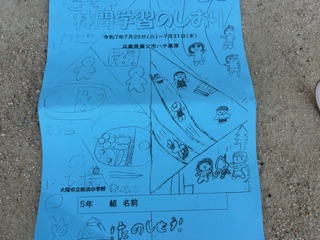 林間学習のしおり
令和7年7月29日(火)~7月31日(木)
兵庫県養父市ハチ高原
5年 組 名前
たのしもう!